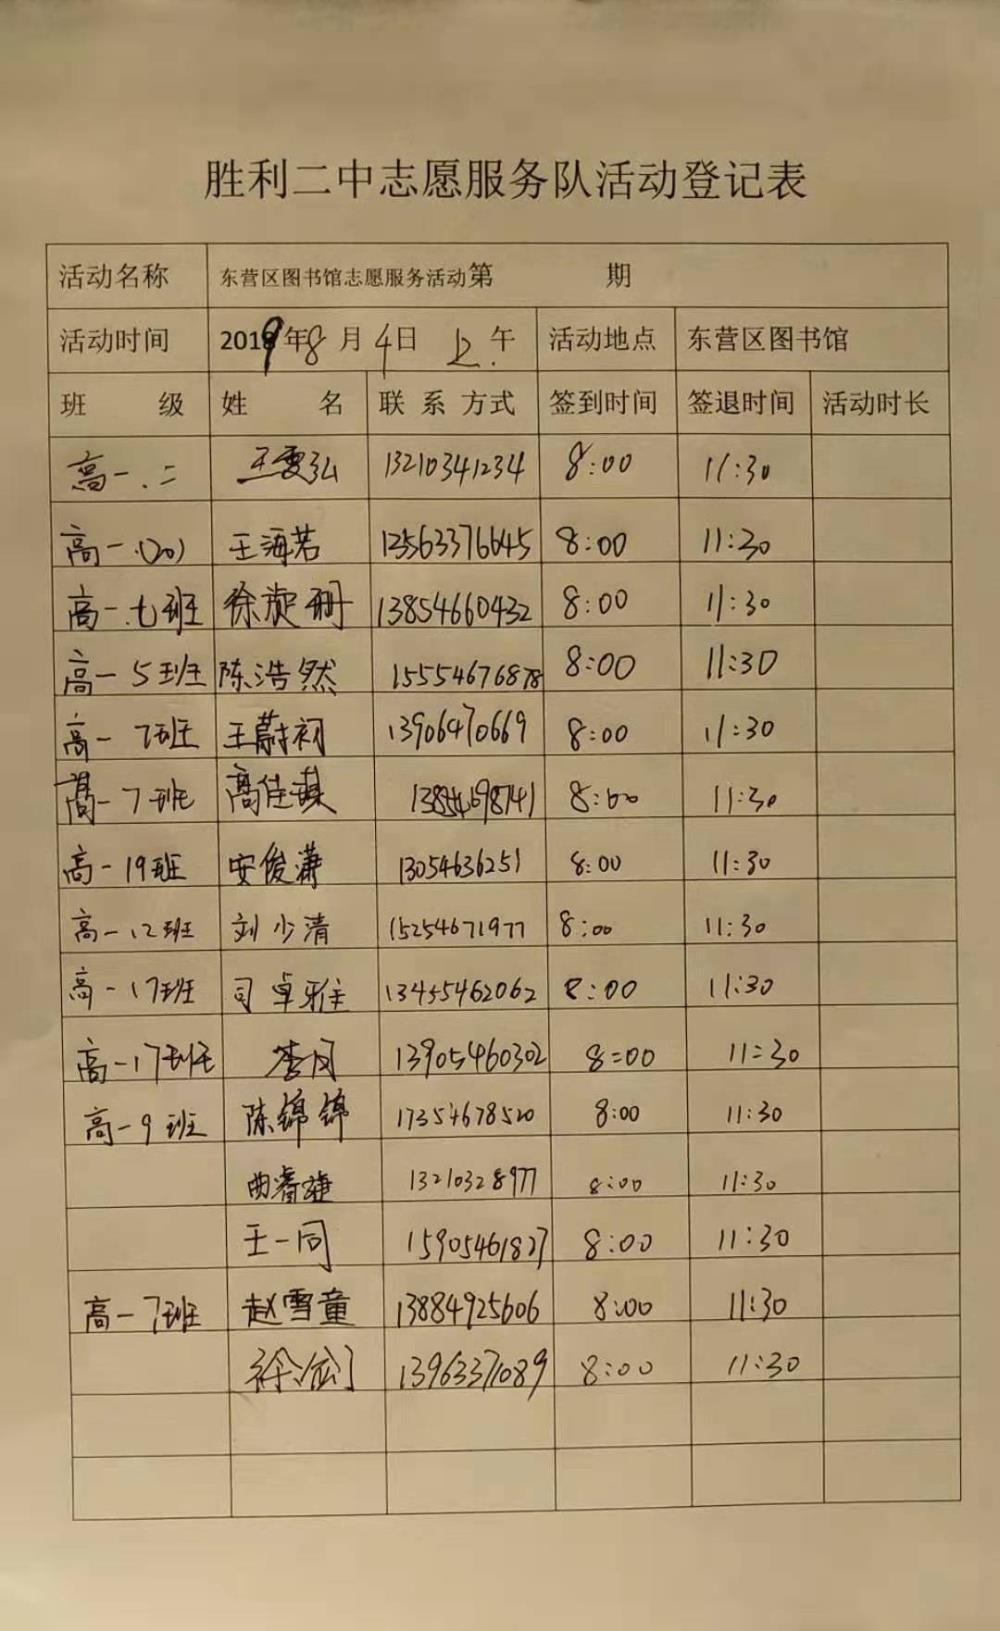 胜利二中志愿服务队活动登记表
活动名称 东营区图书馆志愿服务活动第 期
活动时间 2019年8月4日 上午 活动地点 东营区图书馆
班级 姓名 联系方式 签到时间 签退时间 活动时长
高一.二 王雯弘 13210341234 8:00 11:30
高一.(20) 王海若 13563376645 8:00 11:30
高一.七班 徐旋珊 13854660432 8:00 11:30
高一5班 陈浩然 15554676878 8:00 11:30
高一7班 王蔚初 13906470669 8:00 11:30
高一7班 高佳琪 8:00 11:30
高一19班 安俊潇 13054636251 8:00 11:30
高一12班 刘少清 15254671977 8:00 11:30
高一17班 司卓雅 13455462062 8:00 11:30
高一17班 李月 13905460302 8:00 11:30
高一9班 陈锦锦 17354678520 8:00 11:30
曲睿婕 13210328977 8:00 11:30
王一同 15905461827 8:00 11:30
高一7班 赵雪童 13884925606 8:00 11:30
徐 13963371089 8:00 11:30